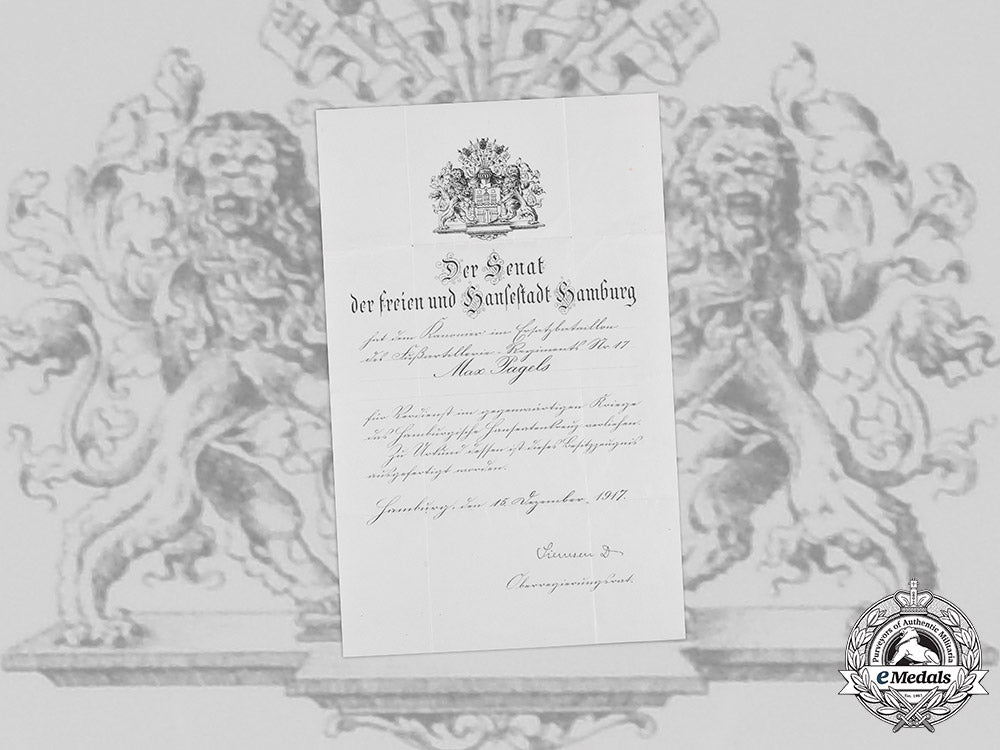 Der Senat
der freien und Hansestadt Hamburg
hat dem Kanonier im Ersatzbataillon
des Fußartillerie-Regiments Nr. 17
Max Pagels
für Verdienst im gegenwärtigen Kriege
das Hamburgische Hanseatenkreuz verliehen.
Zu Urkund dessen ist dieses Besitzzeugnis
ausgefertigt worden.
Hamburg, den 15. Dezember 1917.
Oberregierungsrat.
Purveyors of Authentic Militaria
eMedals